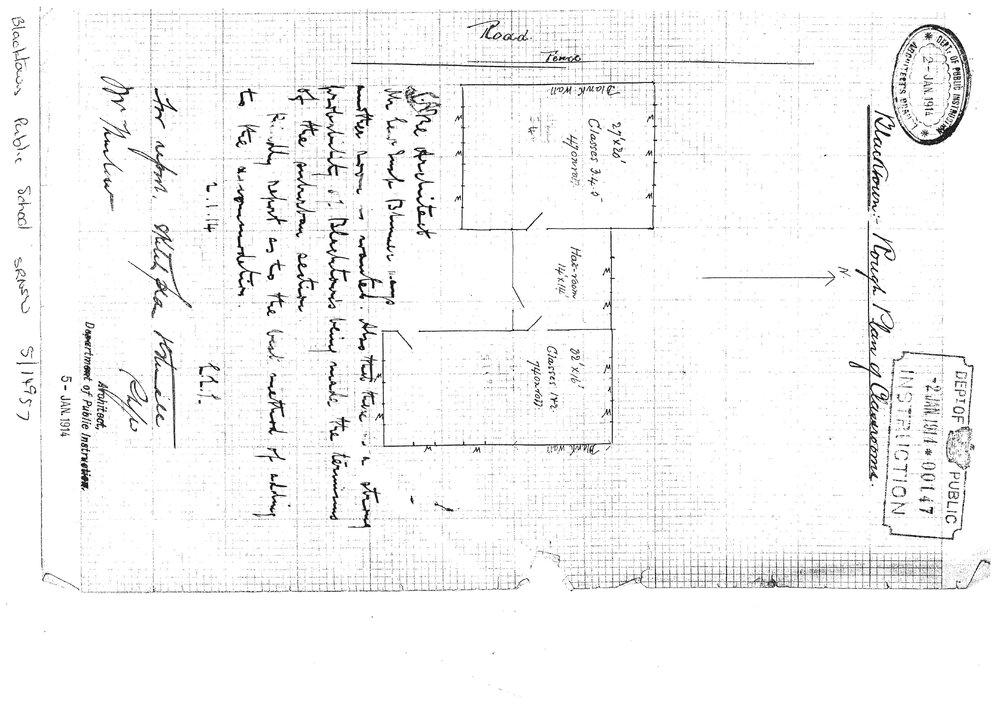 Blacktown:- Rough Plan of Classrooms.
DEPT OF PUBLIC INSTRUCTION
2- JAN. 1914
ARCHITECT'S BRANCH
DEPT OF PUBLIC
-2 JAN. 1914 * 00147
INSTRUCTION
N
Road.
Fence
Blank Wall
27' x 20'
Classes 3.4.5-
Hat-room
14' x 14'
32' x 16'
Classes 1 & 2
Blank Wall
W
W
W
W
W
W
W
W
W
W
W
The Architect
Mr
another room is wanted. Also that there is a strong
probability of Blacktown being made the terminus
of the suburban section.
Kindly report as to the best method of adding
to the accommodation.
2.1.14
For report. Sketch plan & Estimate
Mr
Architect,
Department of Public Instruction.
5- JAN. 1914
Blacktown Public School SRNSW 5/14957